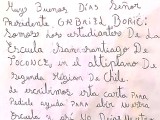 Muy Buenos Días Señor
Presidente GABRIEL BORIC:
Somos los estudiantes De La
Escuela San Santiago De
TOCONCE, en el altiplano De
Segunda Región De Chile.
le escribimos esta carta Para
Pedirle ayuda Para abrir nuestra
Escuela es Así No Dejar Nuestro